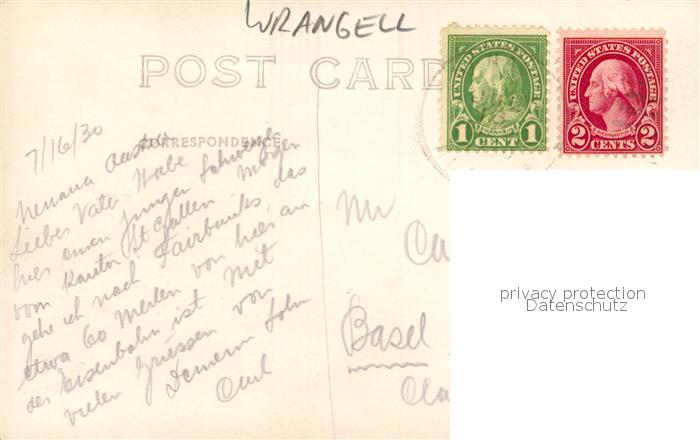 WRANGELL
POST CARD
CORRESPONDENCE
7/16/30
Nenana Alaska
Lieber Vater Habe
hier einen jungen Schweizer
vom Kanton St Gallen Morgen
gehe ich nach Fairbanks, das
etwa 60 Meilen von hier an
der Eisenbahn ist Mit
vielen Grüssen von
Deinem Sohn
Carl
Mr
Ca
Basel
UNITED STATES POSTAGE
FRANKLIN
1 CENT 1
UNITED STATES POSTAGE
WASHINGTON
2 CENTS 2
privacy protection
Datenschutz